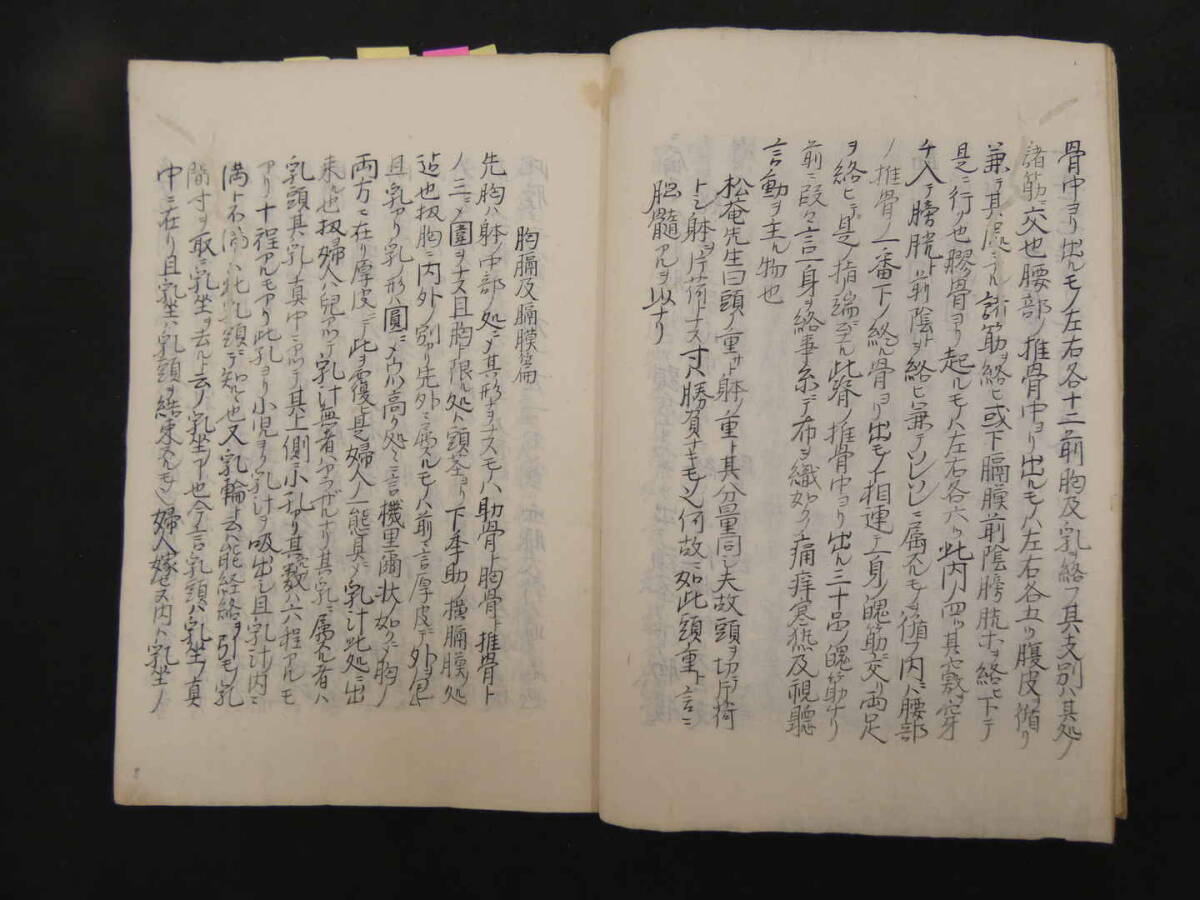 骨中ヨリ出ルモノ左右各十二コ前胸及乳ヲ絡フ其支別ハ其処ノ
諸筋ニ交也腰部ノ推骨中ヨリ出ルモノハ左右各五リ腹皮ヲ循リ
兼テ其処ニ諸筋ヲ絡ヒ或下膈膜前陰膀胱ホヲ絡ヒ下テ
是ニ行ク也膠骨ヨリ起ルモノハ左右各六ツ此内ノ四ツ其竅ヲ穿
チ入テ膀胱ト前陰トヲ絡ヒ兼テソレソレニ属スルモノヲ循フ内ニハ腰部
ノ推骨ノ一番下ノ終ル骨ヨリ出モノト相連テ一身ノ魄筋ニ交リ両足
ヲ絡ヒテ是ノ指端ニ至ル此脊ノ推骨中ヨリ出ル三十品ノ魄筋ナリ
前ニ段々言一身ヲ絡事糸ニテ布ヲ織如クノ痛痒寒熱及視聴
言動ヲ主ル物也
松庵先生曰頭ノ重サト躰ノ重ト其分量同シ夫故頭ヲ切片荷
トシ躰ヲ片荷トナス寸ハ勝負ナキモノ何故ニ如此頭重ト言ニ
脳髄アルヲ以ナリ
胸膈及膈膜篇
先胸ハ躰ノ中部ノ処ニ〆其形ヲナスモノハ助骨ト胸骨ト推骨ト
ノ三ニ〆圍ヲナス且胸ト限ル処ハ頭茎ヨリ下季助ノ横膈膜ノ処
迠也扨胸ニ内外ノ別アリ先外ニ属スルモノハ前ニ言厚皮ニテ外ヲ包
且乳アリ乳ノ形ハ圓〆高ク処ニ言機里爾状ノ如クニ胸ノ
両方ニ在リ厚皮ニテ此ヲ覆ヒ是婦人ノ一能具ニ〆乳汁此処ニ出
来ル也扨婦人ハ児アリテ乳汁無者ハナリ其乳ニ属スル者ハ
乳頭其乳ノ真中ニアリテ其上側ニ小孔アリ其数ハ六程アルモ
アリ十程アルモアリ此乳ヨリ小児ヨク乳汁ヲ吸出シ且乳汁ノ内ニ
満ト不満ハ此乳頭ニテ知ル也又乳輪ト云ハ能経絡ヲ引モ乳
間寸ヲ取ニ乳坐ヲ去ルト云ノ乳坐ノ也今言乳頭ハ乳坐ノ真
中ニ在リ且乳坐ハ乳頭ヲ結束スルモノ婦人嫁セヌ内ハ乳坐ノ